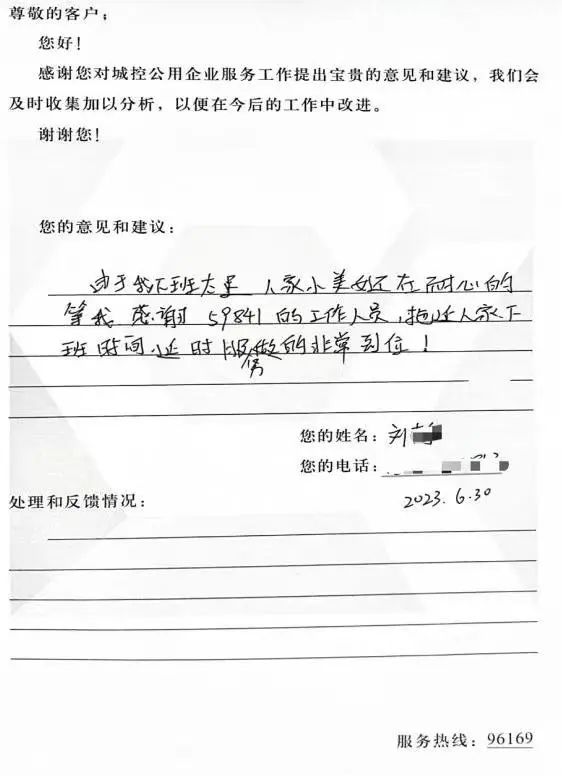 尊敬的客户；
您好！
感谢您对城控公用企业服务工作提出宝贵的意见和建议，我们会
及时收集加以分析，以便在今后的工作中改进。
谢谢您！
您的意见和建议：
由于我下班太晚 人家小美女还在耐心的
等我 感谢 59841 的工作人员，拖延人家下
班时间 延时服务做的非常到位！
您的姓名：刘
您的电话：
2023.6.30
处理和反馈情况：
服务热线：96169